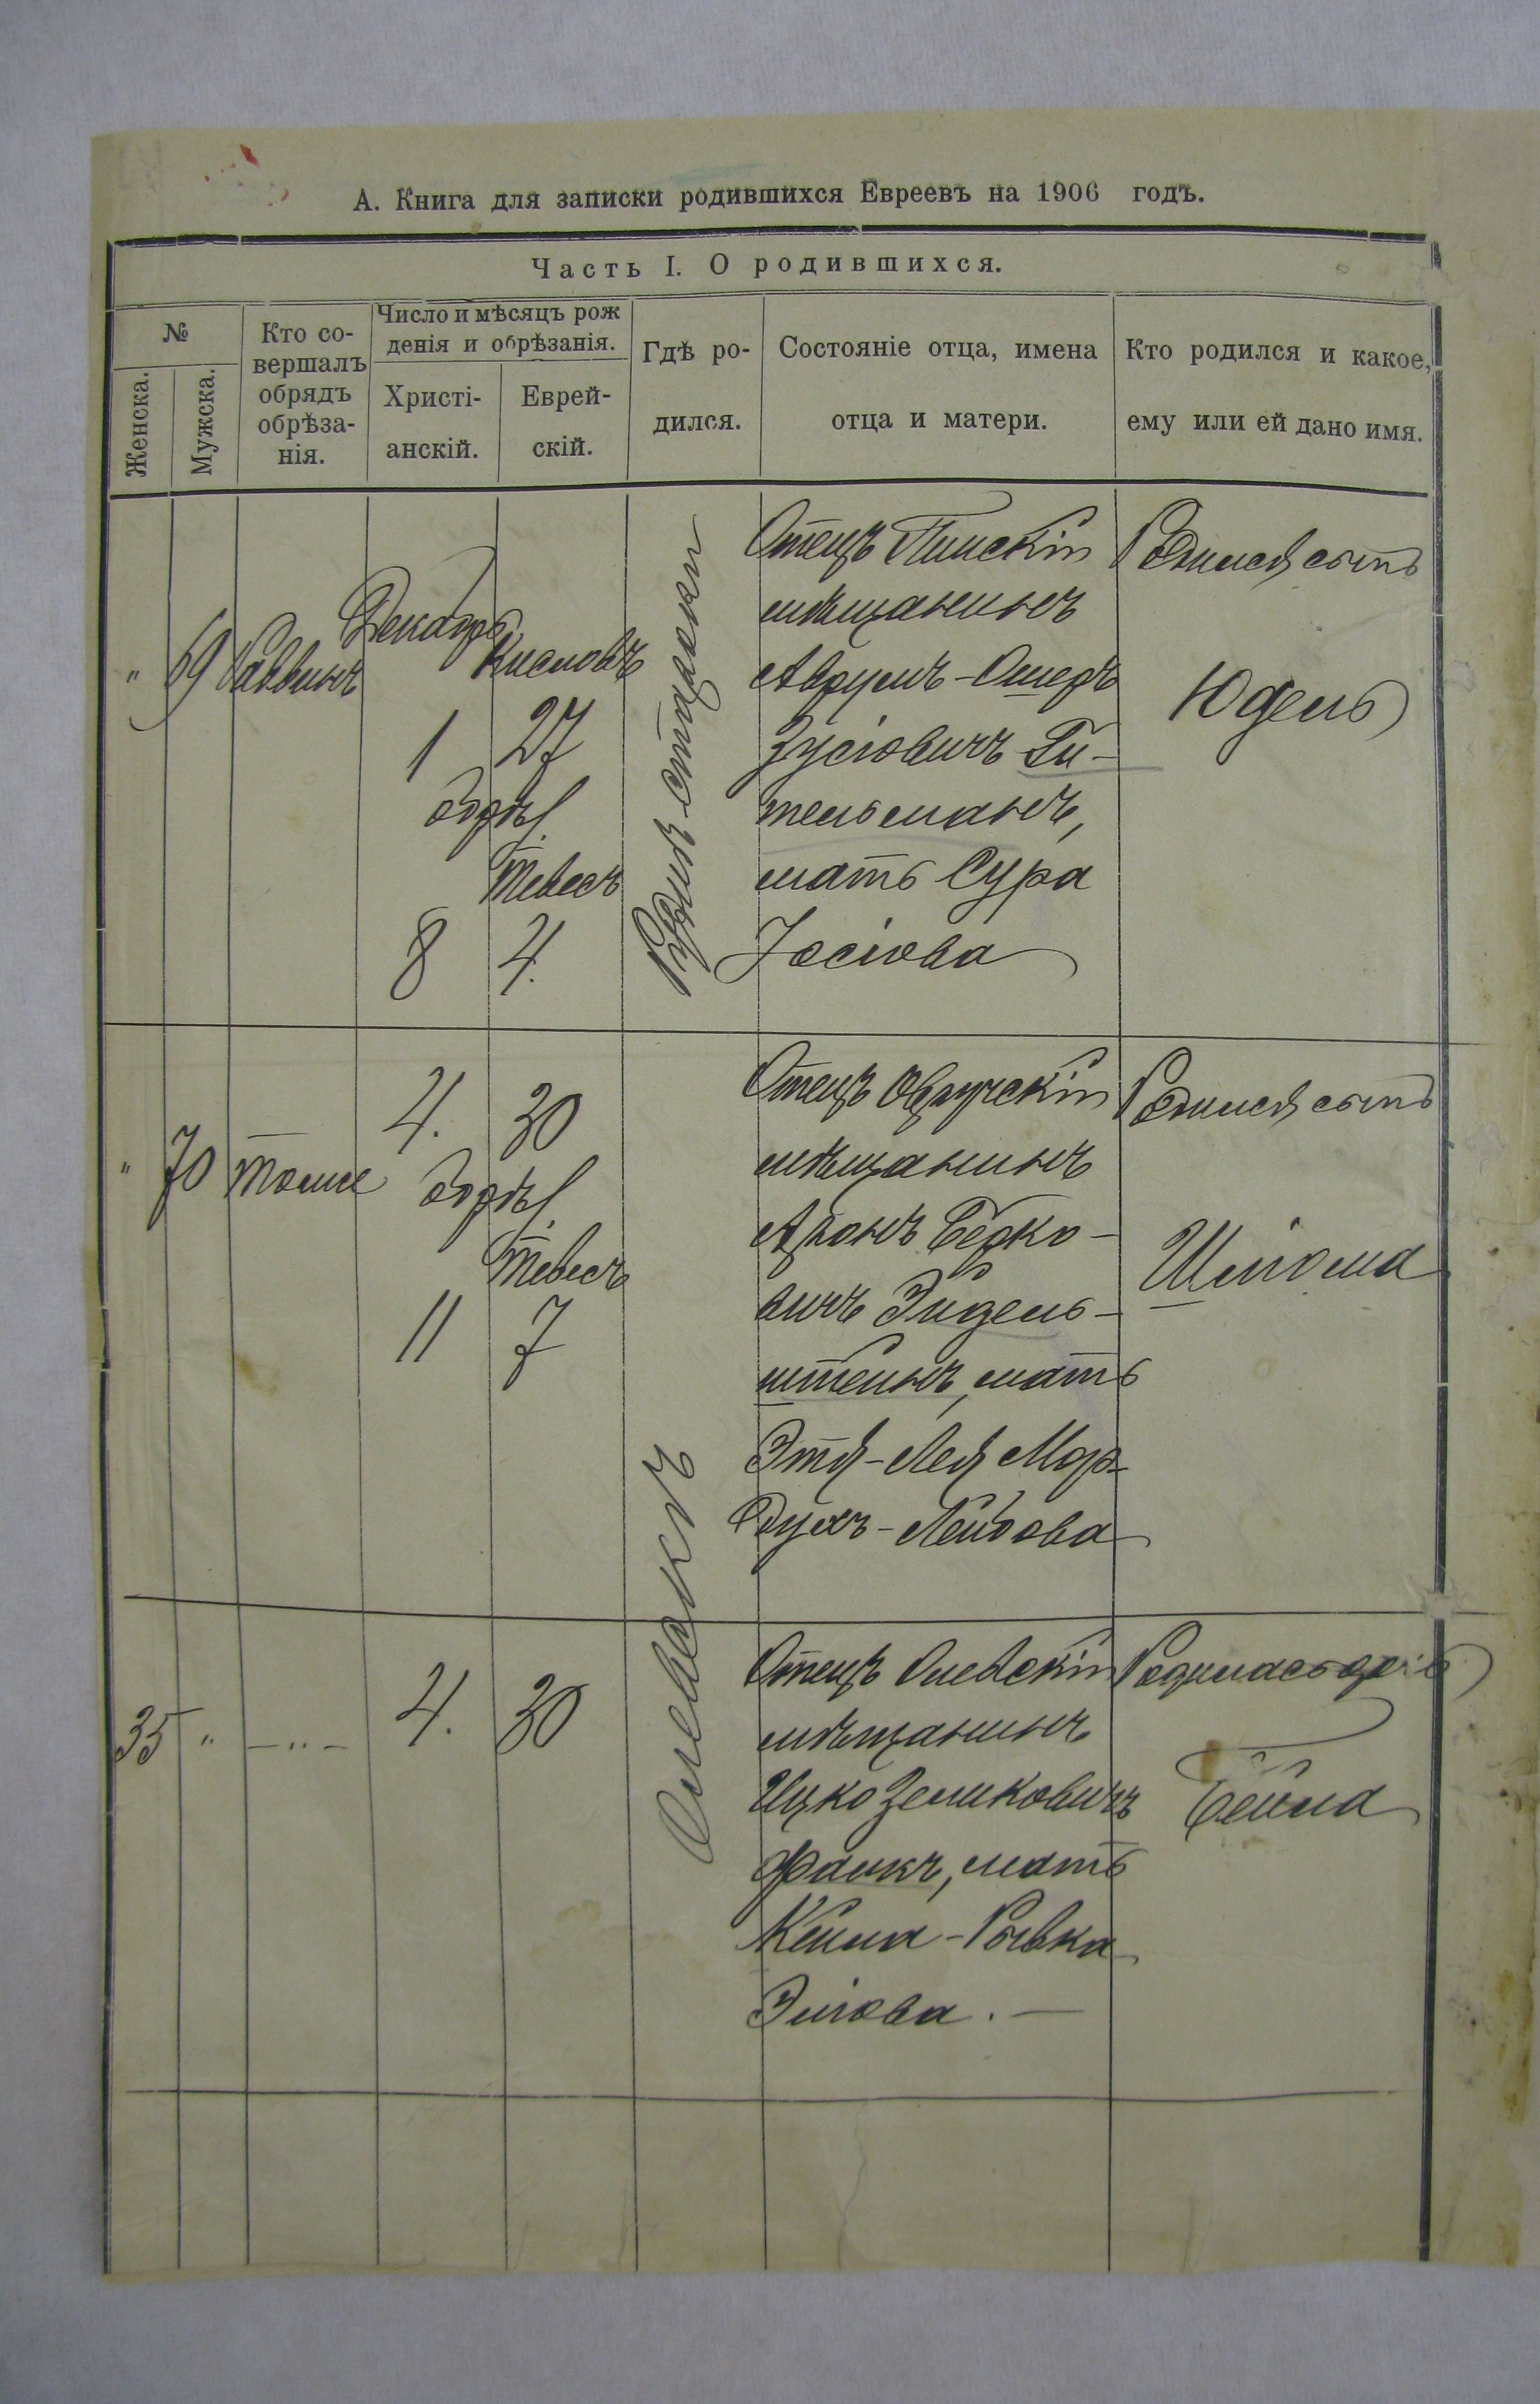 А. Книга для записки родившихся Евреевъ на 1906 годъ.
Часть I. О родившихся.
№
Женска.
Мужска.
Кто со-
вершалъ
обрядъ
обрѣза-
нія.
Число и мѣсяцъ рож
денія и обрѣзанія.
Христі-
анскій.
Еврей-
скій.
Гдѣ ро-
дился.
Состояніе отца, имена
отца и матери.
Кто родился и какое,
ему или ей дано имя.
" 69 Раввинъ
Декабрь
Кисловъ
1 27
обрѣз.
Тевесъ
8 4.
станціи
Отецъ Пинскій
мѣщанинъ
Аврумъ-Ошеръ
Зусіовичъ Ги-
тельманъ,
мать Сура
Іосіова
Родился сынъ
Юдель
" 70 тоже
4. 30
обрѣз.
Тевесъ
11 7
Отецъ Овручскій
мѣщанинъ
Аронъ Берко-
вичъ Эйдель-
штейнъ, мать
Этя-Лея Мор-
духъ-Лейбова
Родился сынъ
Шліома
35 " -"-
4. 30
Олевскъ
Отецъ Олевскій
мѣщанинъ
Ицко Зеликовичъ
Фалкъ, мать
Кейла-Рывка
Эліова. —
Родилась дочь
Бейла